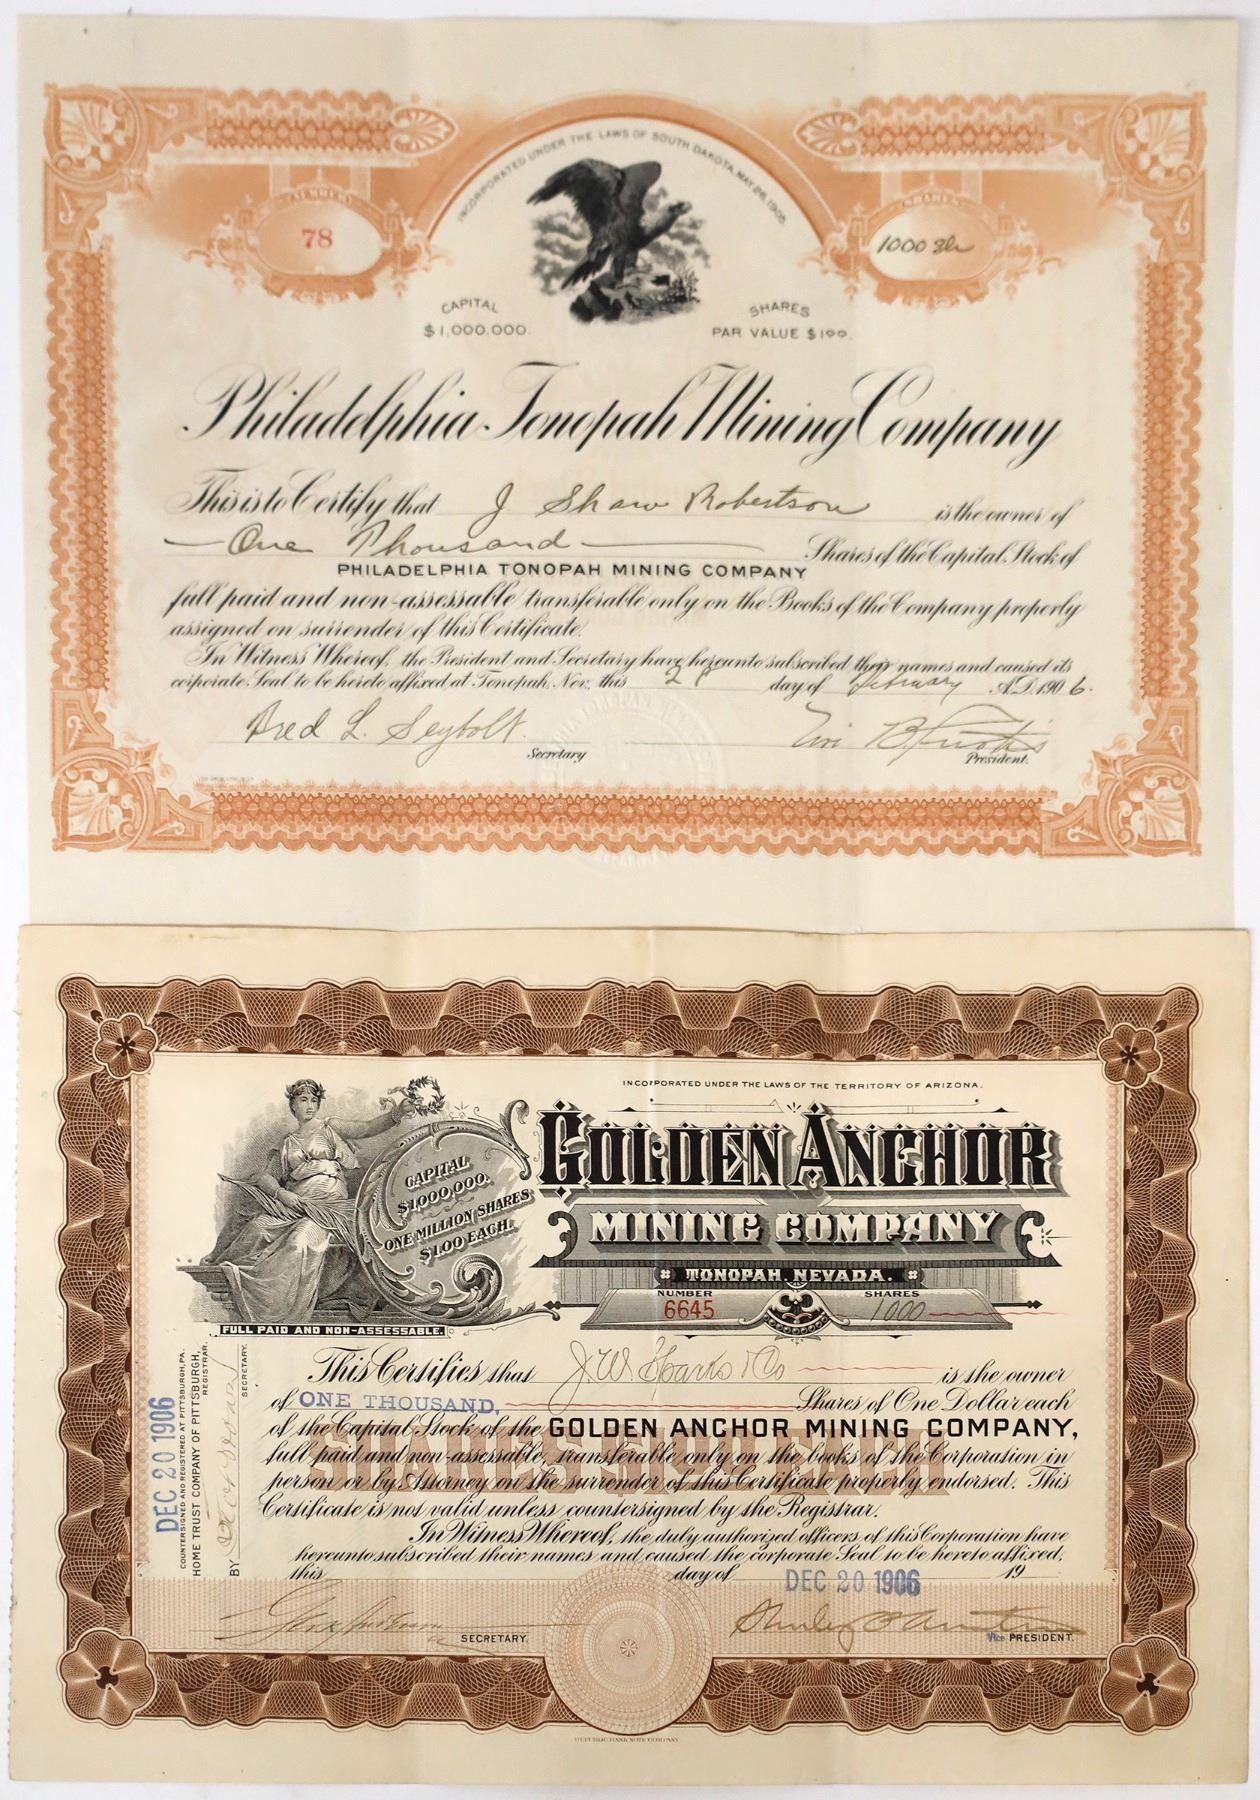 INCORPORATED UNDER THE LAWS OF SOUTH DAKOTA, MAY 26, 1905.
NUMBER
78
SHARES
1000 Sh
CAPITAL
$1,000,000.
SHARES
PAR VALUE $1.00.
Philadelphia Tonopah Mining Company
This is to Certify that J Shaw Robertson is the owner of
One Thousand Shares of the Capital Stock of
PHILADELPHIA TONOPAH MINING COMPANY
full paid and non-assessable transferable only on the Books of the Company properly
assigned on surrender of this Certificate.
In Witness Whereof, the President and Secretary have hereunto subscribed their names and caused its
corporate Seal to be hereto affixed at Tonopah, Nev, this 28 day of February A.D. 1906.
Fred L. Seybolt
Secretary
President.
INCORPORATED UNDER THE LAWS OF THE TERRITORY OF ARIZONA.
CAPITAL
$1,000,000.
ONE MILLION SHARES
$1.00 EACH.
GOLDEN ANCHOR
MINING COMPANY
TONOPAH, NEVADA.
NUMBER
6645
SHARES
1000
FULL PAID AND NON-ASSESSABLE.
This Certifies that J.W. Sparks & Co is the owner
of ONE THOUSAND, Shares of One Dollar each
of the Capital Stock of the GOLDEN ANCHOR MINING COMPANY,
full paid and non-assessable, transferable only on the books of the Corporation in
person or by Attorney on the surrender of this Certificate properly endorsed. This
Certificate is not valid unless countersigned by the Registrar.
In Witness Whereof, the duly authorized officers of this Corporation have
hereunto subscribed their names and caused the corporate Seal to be hereto affixed,
this day of DEC 20 1906 19
SECRETARY.
Vice PRESIDENT.
DEC 20 1906
COUNTERSIGNED AND REGISTERED AT PITTSBURGH, PA.
HOME TRUST COMPANY OF PITTSBURGH,
REGISTRAR.
BY
SECRETARY.
REPUBLIC BANK NOTE COMPANY